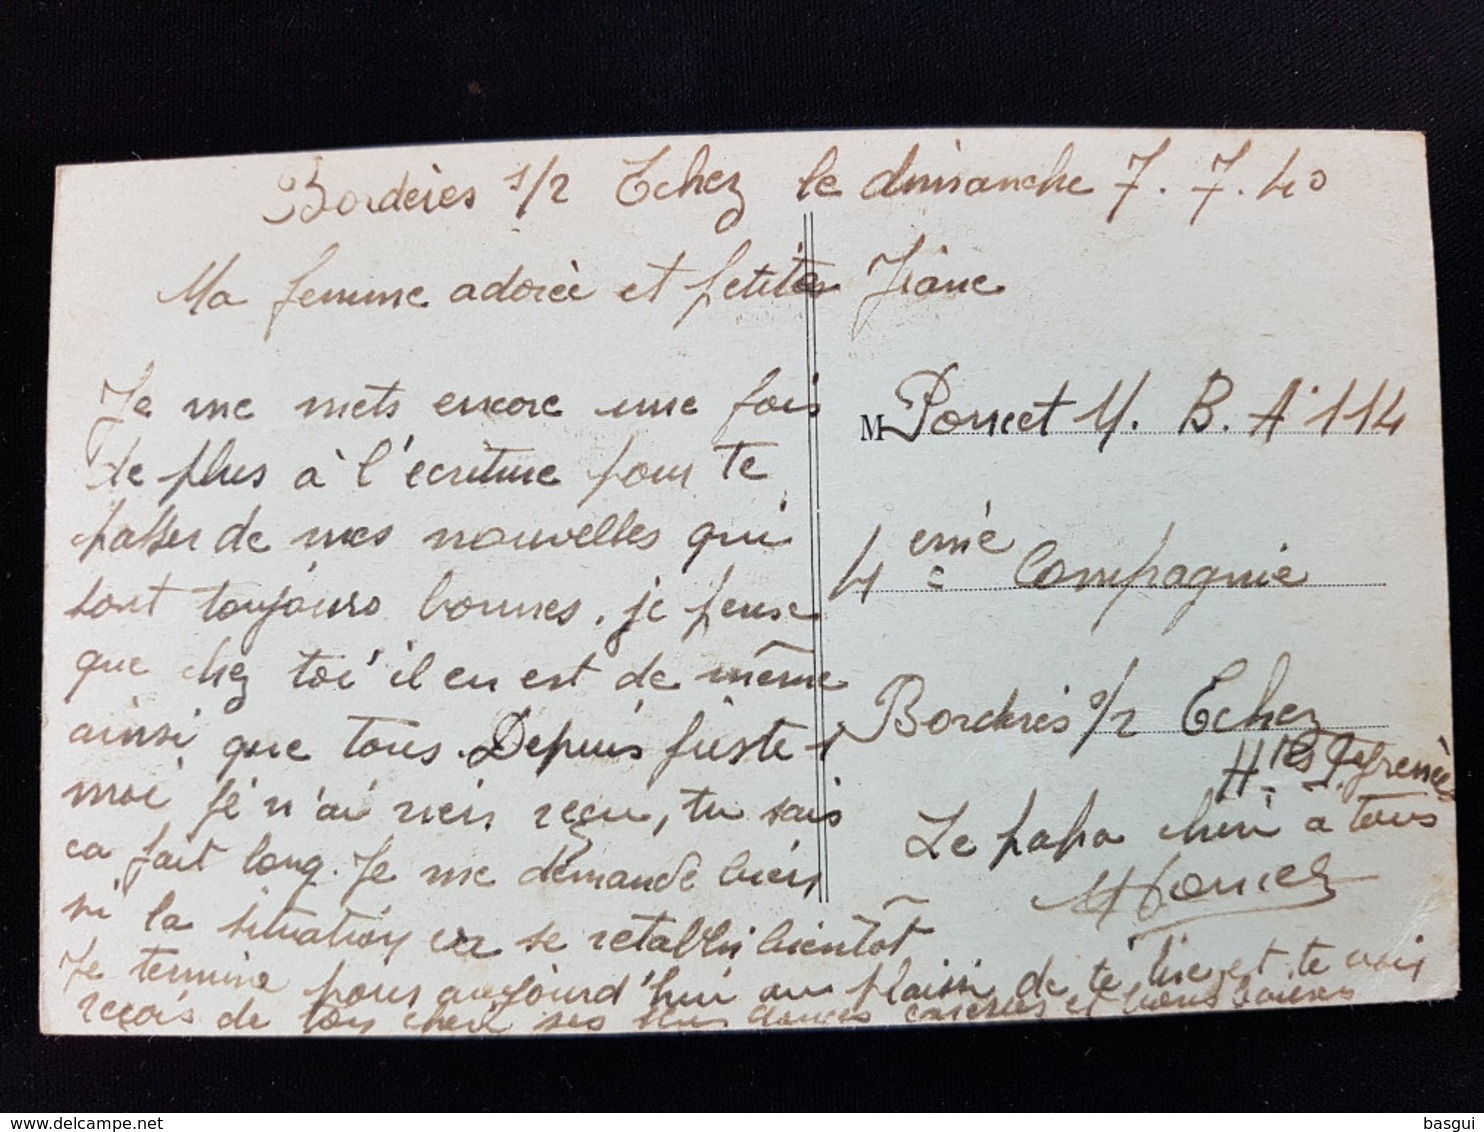 Bordères s/2 Echez le dimanche 7.7.40
Ma femme adorée et petites
Je me mets encore une fois
de plus à l'écriture pour te
passer de mes nouvelles qui
sont toujours bonnes. je pense
que chez toi il en est de même
ainsi que tous. Depuis
moi je n'ai rien reçu, tu sais
ca fait long. Je me demande bien
si la situation va se retablir bientôt
Je termine pour aujourd'hui au plaisir de te lire et te voir
reçois de ton cheri ses plus douces caresses et bons baisers
M Poncet M. B. A. 114
4 eme Compagnie
Borderes s/2 Echez
Htes Pyrenées
Le papa cheri a tous
M Poncet
basgui